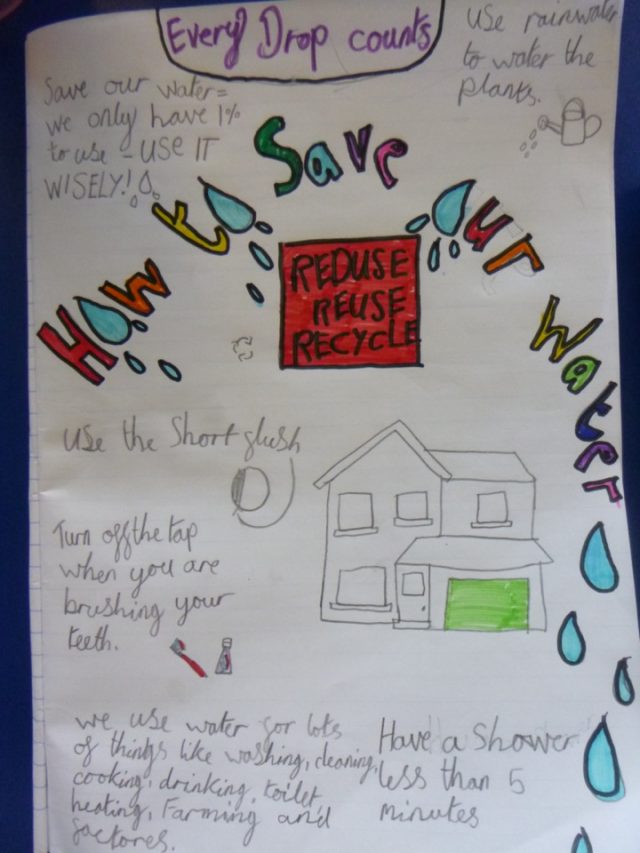 Every Drop counts
Use rainwater
to water the
plants.
Save our water=
we only have 1%
to use - USE IT
WISELY!
How to Save Our Water
REDUSE
REUSE
RECYCLE
Use the Short flush
Turn off the tap
when you are
brushing your
teeth.
we use water for lots
of things like washing, cleaning,
cooking, drinking, toilet
heating, Farming and
factores.
Have a Shower
less than 5
minutes